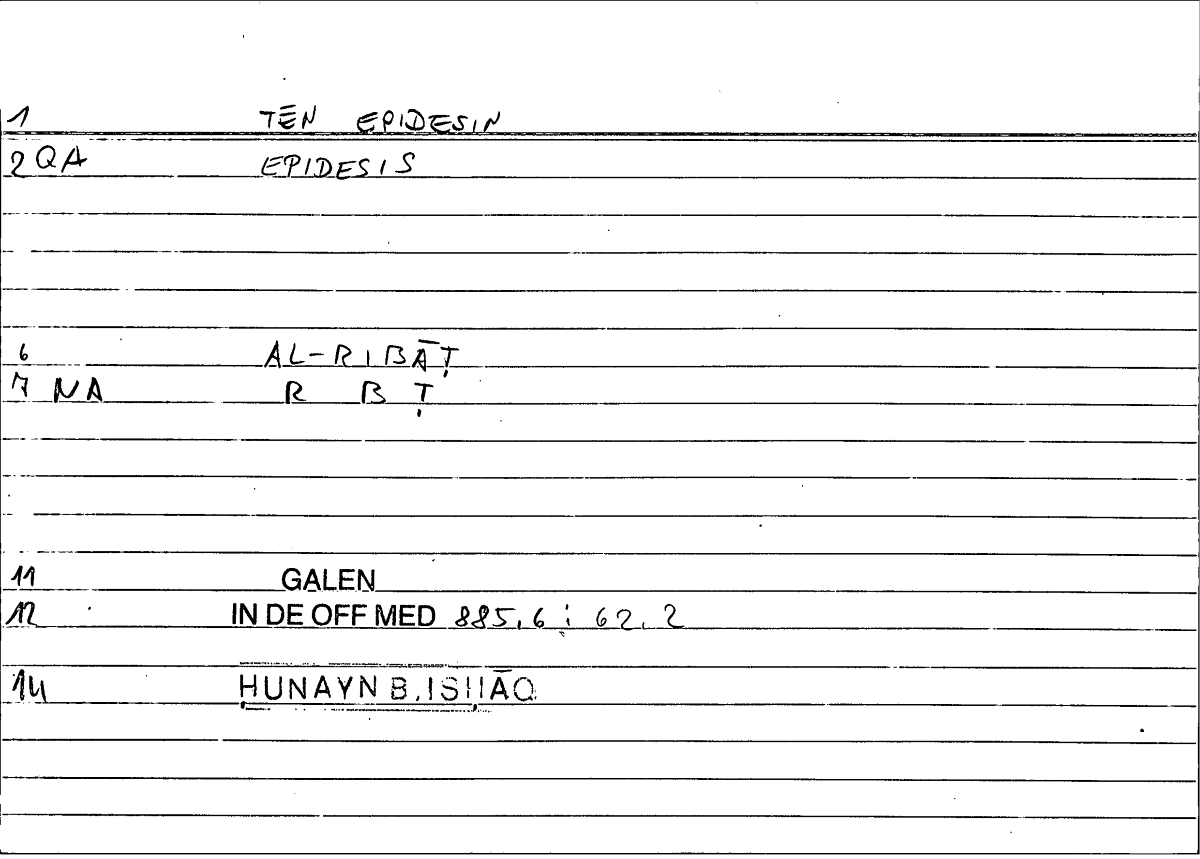 1 TĒN EPIDESIN
2 QA EPIDESIS
6 AL-RIBĀṬ
7 NA R B Ṭ
11 GALEN
12 IN DE OFF MED 885,6 ; 62,2
14 ḤUNAYN B. ISḤĀQ